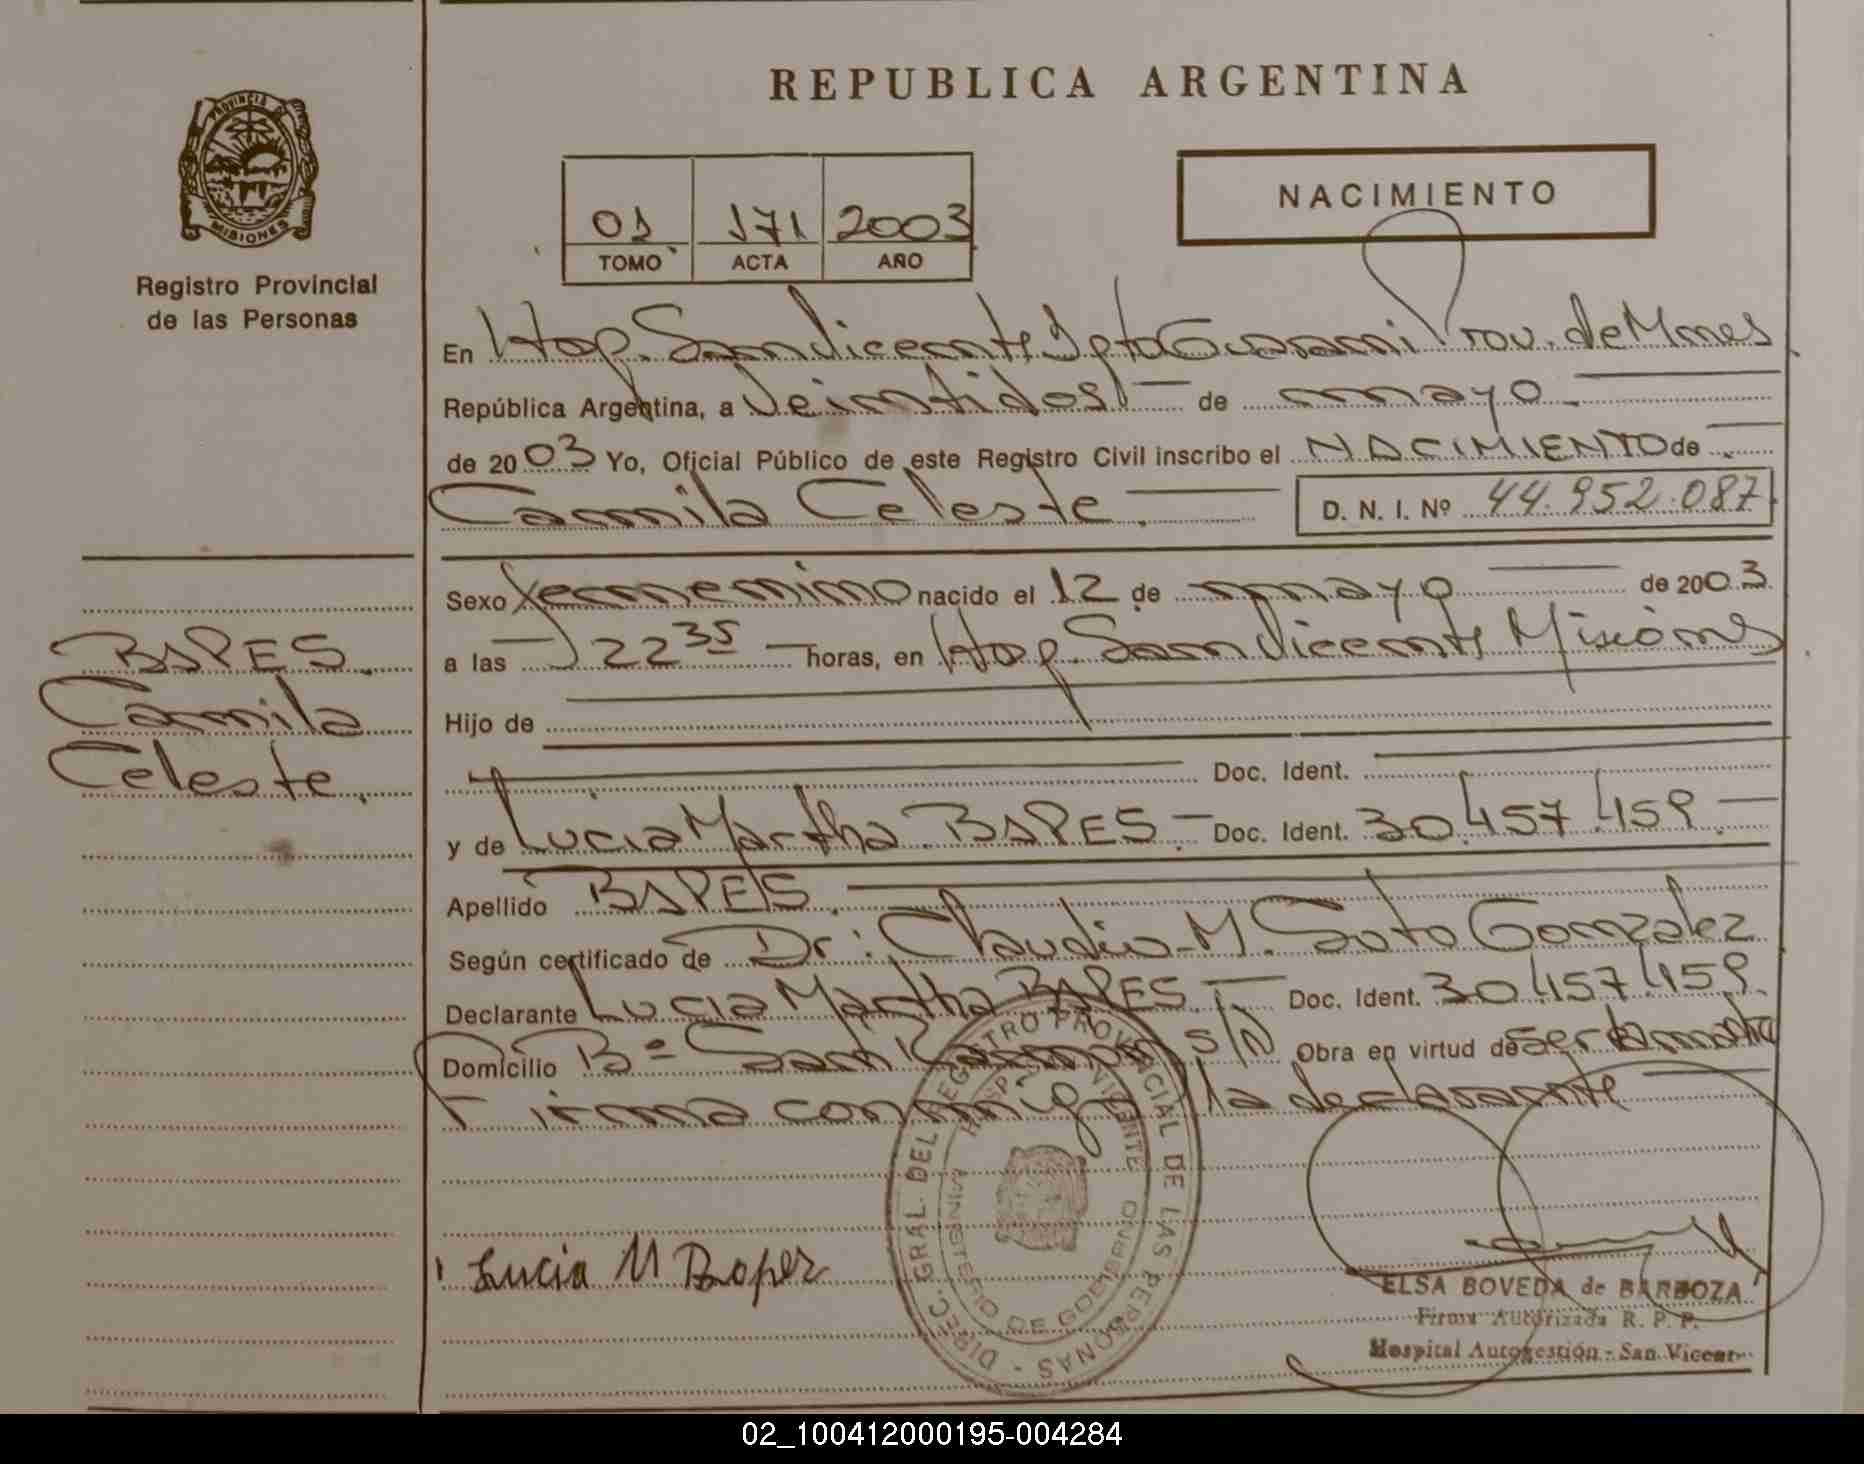 REPUBLICA ARGENTINA
PROVINCIA DE
MISIONES
Registro Provincial
de las Personas
01 171 2003
TOMO ACTA AÑO
NACIMIENTO
En Hosp. San Vicente Dpto Guarani Prov. de Mnes
República Argentina, a Veintidos de mayo
de 2003 Yo, Oficial Público de este Registro Civil inscribo el NACIMIENTO de
Camila Celeste. D. N. I. Nº 44.952.087
Sexo femenino nacido el 12 de mayo de 2003
a las 22 35 horas, en Hosp. San Vicente Misiones
Hijo de
Doc. Ident.
y de Lucia Martha BAPES.- Doc. Ident. 30.457.459.
Apellido BAPES.
Según certificado de Dr: Claudio M. Soto Gonzalez
Declarante Lucia Martha BAPES. Doc. Ident. 30.457.459.
Domicilio Bº San Ramon s/n Obra en virtud de ser la madre
Firma conmigo la declarante
BAPES.
Camila
Celeste.
Lucia M Bapes
DIREC. GRAL. DEL REGISTRO PROVINCIAL DE LAS PERSONAS
HOSP. SAN VICENTE
MINISTERIO DE GOBIERNO
ELSA BOVEDA de BARBOZA
Firma Autorizada R. P. P.
Hospital Autogestión - San Vicente
02_100412000195-004284